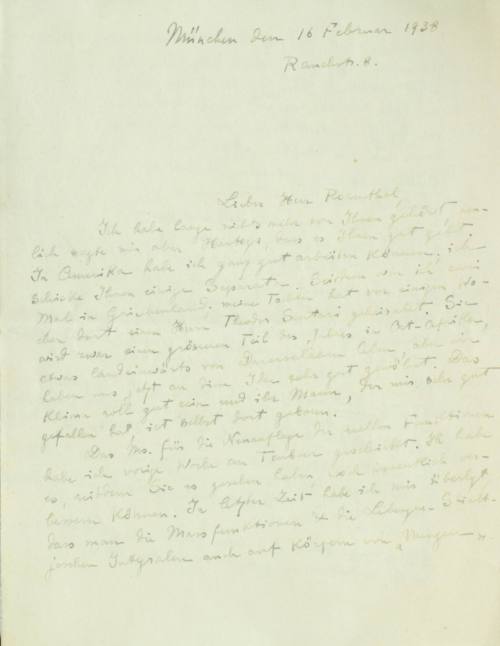 München den 16 Februar 1938
Rauchstr. 8.
Lieber Herr Rosenthal
Ich habe lange nichts mehr von Ihnen gehört, neu-
lich sagte mir aber Hartogs, dass es Ihnen gut geht.
In Amerika habe ich ganz gut arbeiten können; ich
schicke Ihnen einige Separata. Seitdem war ich zwei
Mal in Griechenland; meine Tochter hat vor einigen Wo-
chen dort einen Herrn Theodor geheiratet. Sie
wird zwar einen grösseren Teil des Jahres in Ost-Afrika,
etwas landeinwärts von Daressalam leben, aber wir
haben uns jetzt an die Idee sehr gut gewöhnt. Das
Klima soll gut sein und ihr Mann, der mir sehr gut
gefallen hat, ist selbst dort geboren.
Das Ms. für die Neuauflage der reellen Funktionen
habe ich vorige Woche an Teubner geschickt. Ich habe
es, seitdem Sie es gesehen haben, noch wesentlich ver-
bessern können. In letzter Zeit habe ich mir überlegt
dass man die Massfunktionen & die Lebesgue-Stielt-
jesschen Integralen auch auf Körpern von „Mengen"